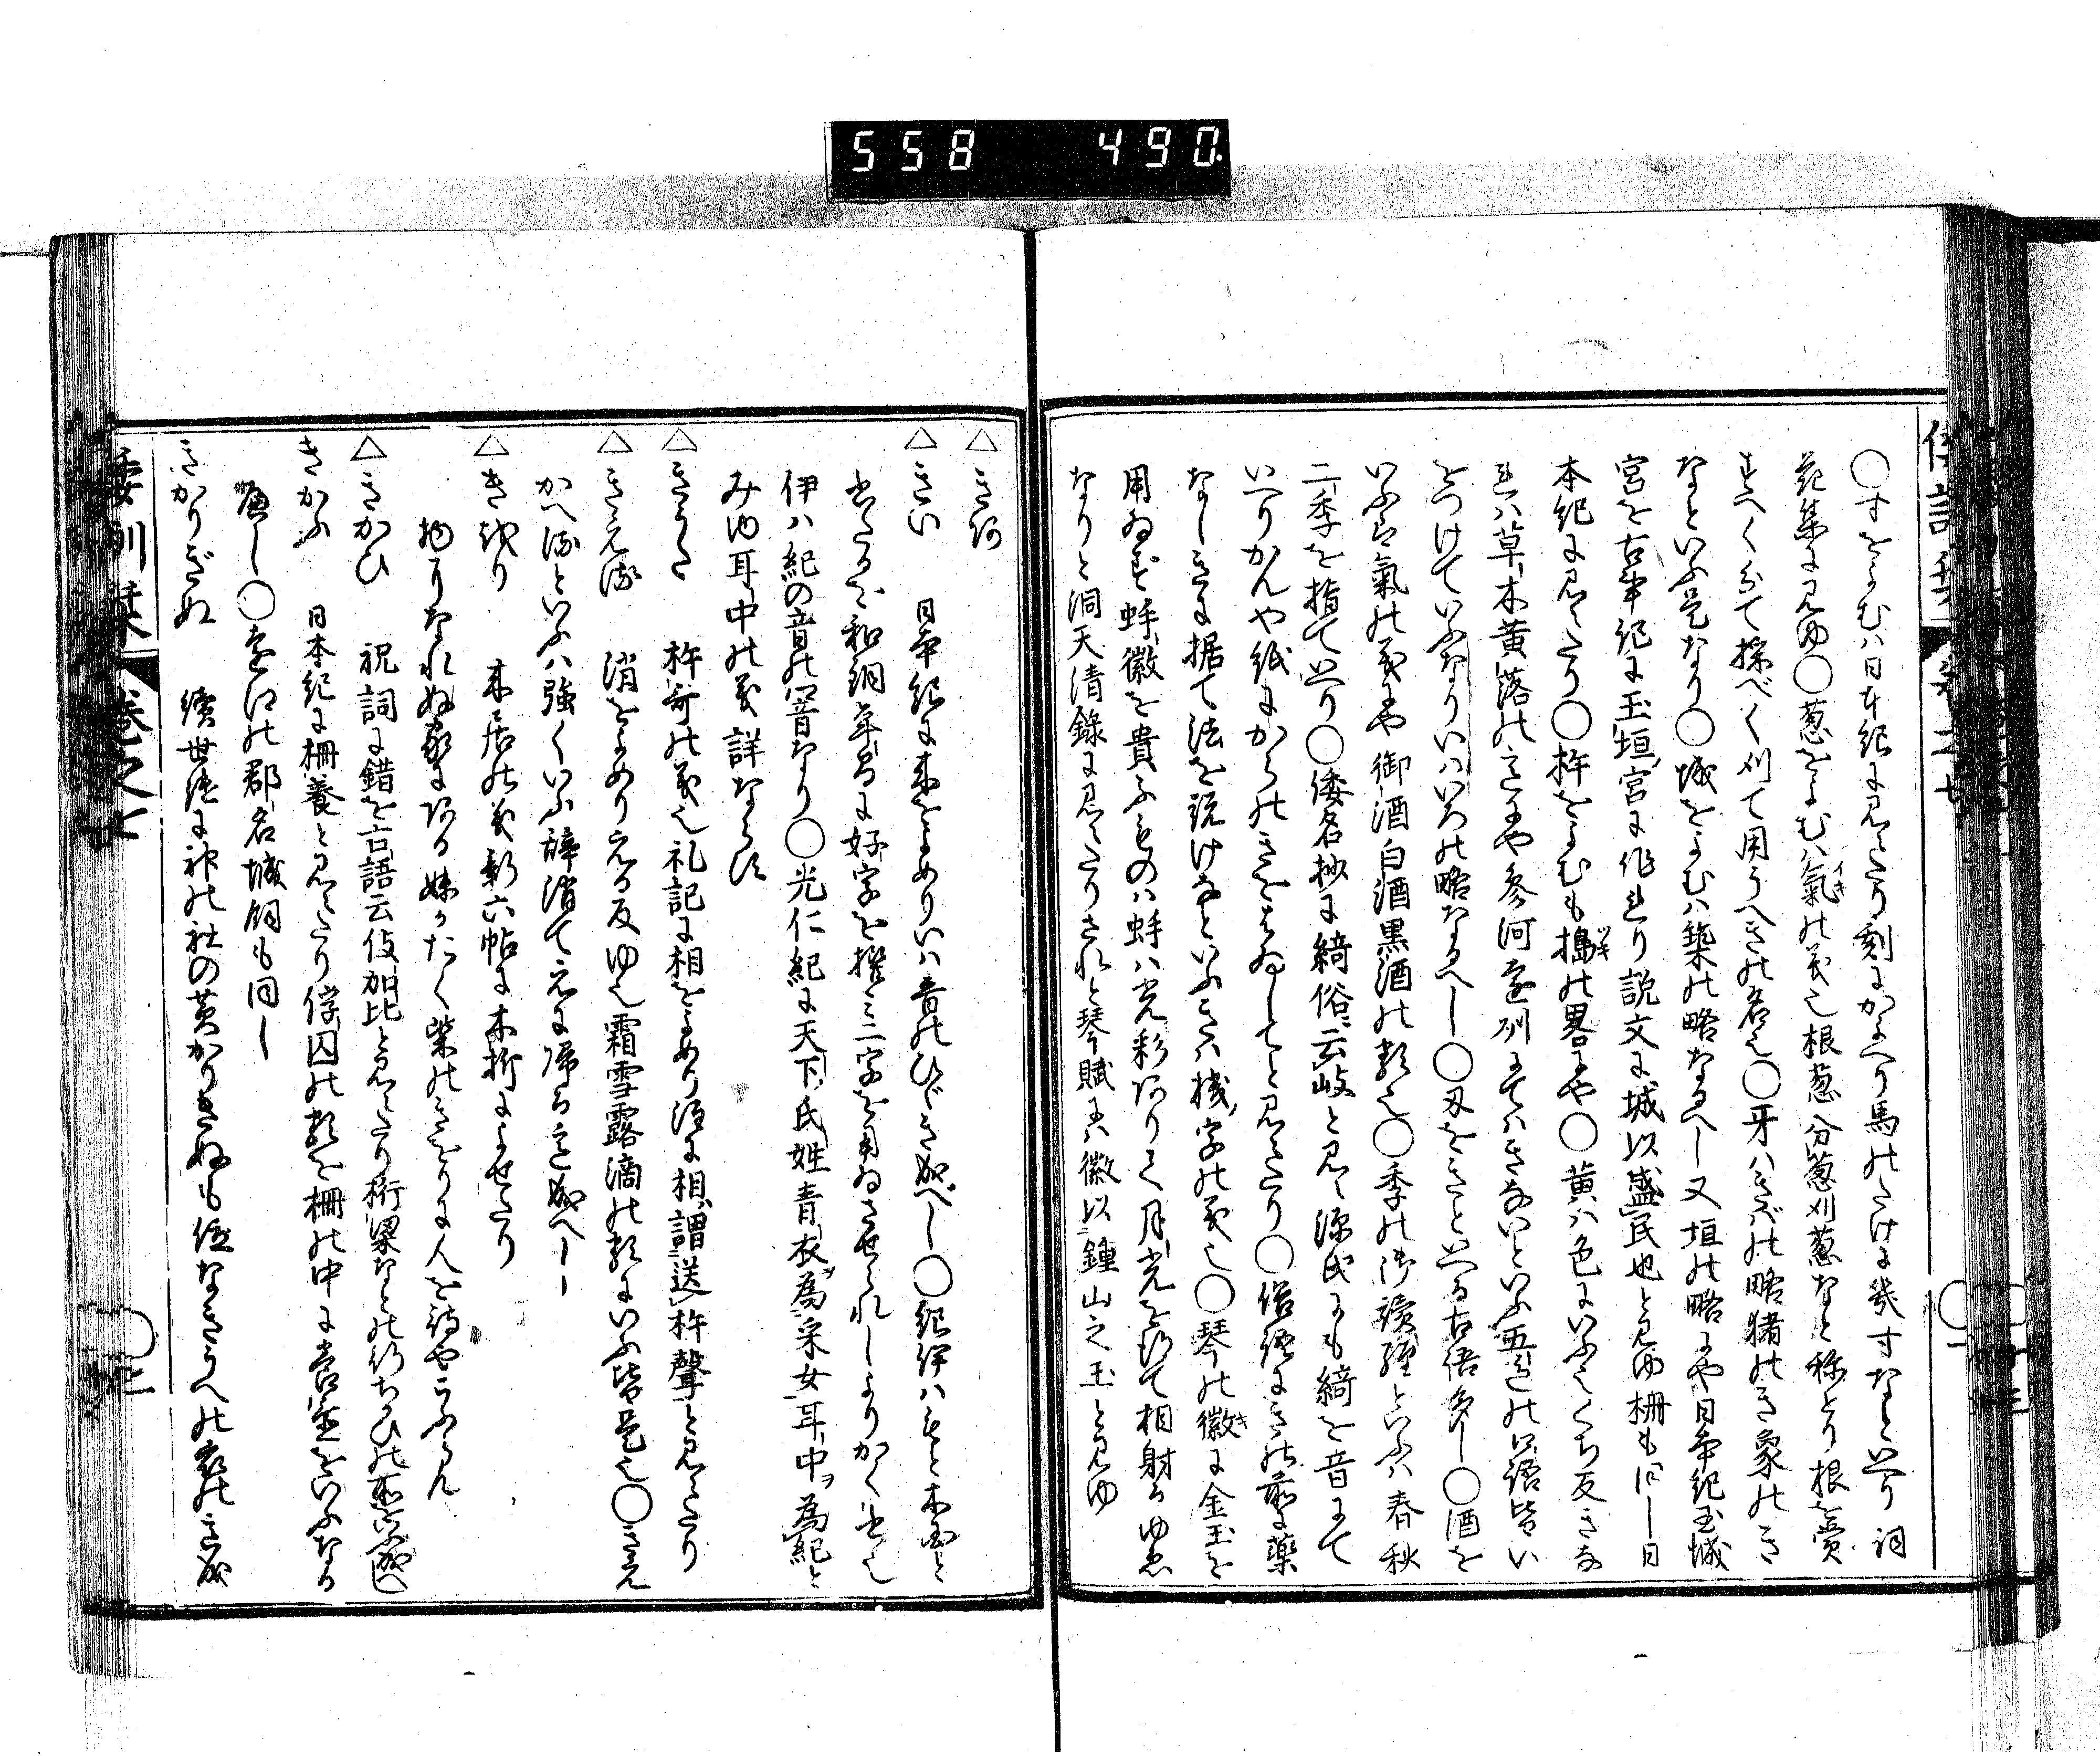 558 490
○寸をよむハ日本紀に見えたり刻にかよへり馬のたけに幾寸なといへり詞
花集に見ゆ○葱をよむハ氣の義也根葱分葱刈葱なと称せり根を賞
すへく分て採べく刈て用うへきの名也○牙ハきばの略猪のき象のき
なといふ是なり○城をよむハ築の略なるへし又垣の略にや日本紀玉城
宮を古事記に玉垣宮に作れり説文に城以盛民也と見ゆ柵も同し日
本紀に見えたり○杵をよむも搗の畧にや○黄ハ色にいふくち反きな
れハ草木黄落の意にや参河遠州にてハきないといふ五色の語皆い
をつけていふなりいハいろの略なるへし○刃をきといへる古語多し○酒を
いふハ氣の義にや御酒白酒黒酒の類也○季の御讀經といふハ春秋
二季を指ていへり○倭名抄に綺俗云岐と見え源氏にも綺を音にて
いへりかんや紙にからのきをはゐしてと見えたり○俗語にきの前に藥
なしきに据て法を説けなといふきハ機字の義也○琴の徽に金玉を
用ゐず蚌徽を貴ふものハ蚌ハ光彩ありて月光を得て相射るゆゑ
なりと洞天清録に見えたりされと琴賦にハ徽以鍾山之玉と見ゆ
△きあ
△きい 日本紀に木をよめりいハ音のひゞき成べし○紀伊ハもと木國と
書たるが和銅年間に好字を撰ミ二字を用ゐさせられしよりかく書也
伊ハ紀の音の響音なり○光仁紀に天下氏姓青衣為采女耳中為紀と
みゆ耳中の義詳ならす
△きうた 杵哥の義也礼記に相をよめり注に相謂送杵聲と見えたり
△きえる 消をよめりえる反ゆ也霜雪露滴の類にいふ皆是也○きえ
かへるといふハ強くいふ辞消て元に帰る意成へし
△きをり 木居の義新六帖に木折によせたり
物りなれぬ家にある妹かたく柴のきをりに人を待やこふらん
△きかひ 祝詞に錯を古語云伎加比と見えたり桁梁なとの行ちかひの所をいふ成へし
きかふ 日本紀に柵養と見えたり俘囚の類を柵の中に畜置をいふなる
へし○遠江の郡名城飼も同し
きかりぎぬ 續世継に神の社の黄かりきぬも位なきうへの衣のき成
倭訓栞 巻之七